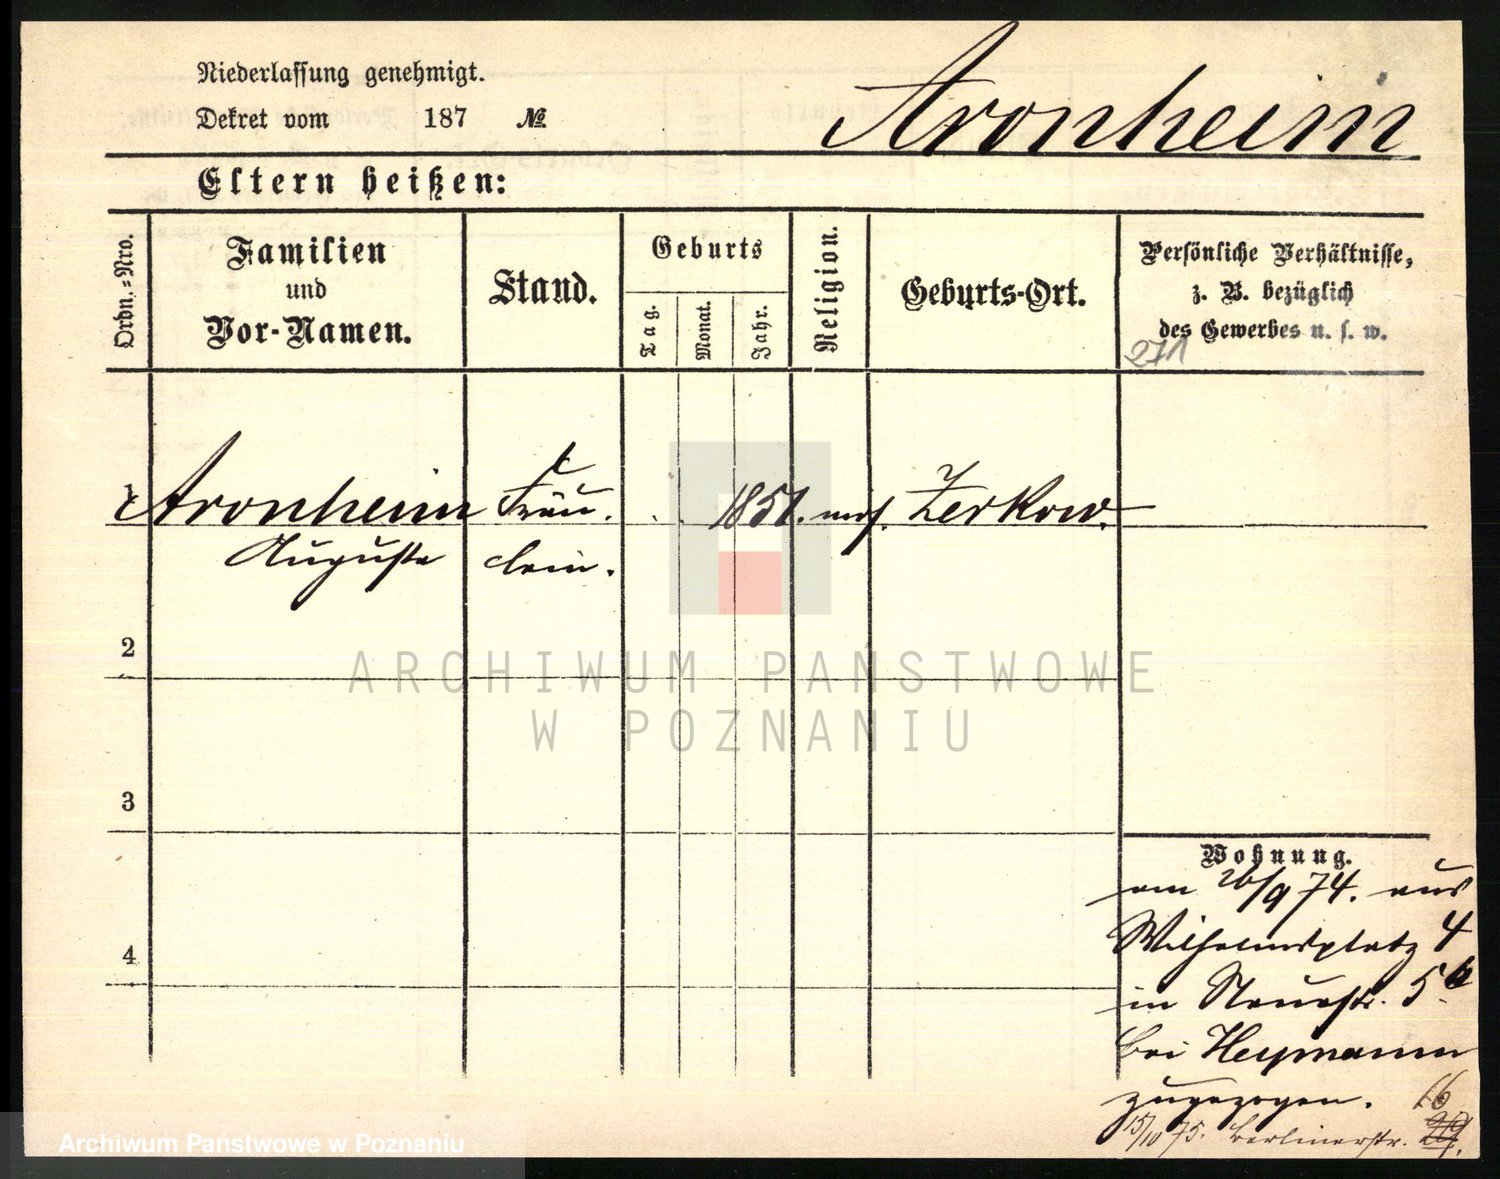 Niederlassung genehmigt.
Dekret vom 187 №
Aronheim
Eltern heißen:
Ordn.-Nro.
Familien
und
Vor-Namen.
Stand.
Geburts
Tag.
Monat.
Jahr.
Religion.
Geburts-Ort.
Persönliche Verhältnisse,
z. B. bezüglich
des Gewerbes u. s. w.
271
1 Aronheim Fräu- 1851. mos. Zerkow.
Auguste lein.
2
ARCHIWUM PAŃSTWOWE
W POZNANIU
3
4
Wohnung.
am 26/9 74. aus
Wilhelmsplatz 4
in Neuestr. 5
bei Heymann
zugezogen. 16
15/10 75. Berlinerstr.
Archiwum Państwowe w Poznaniu